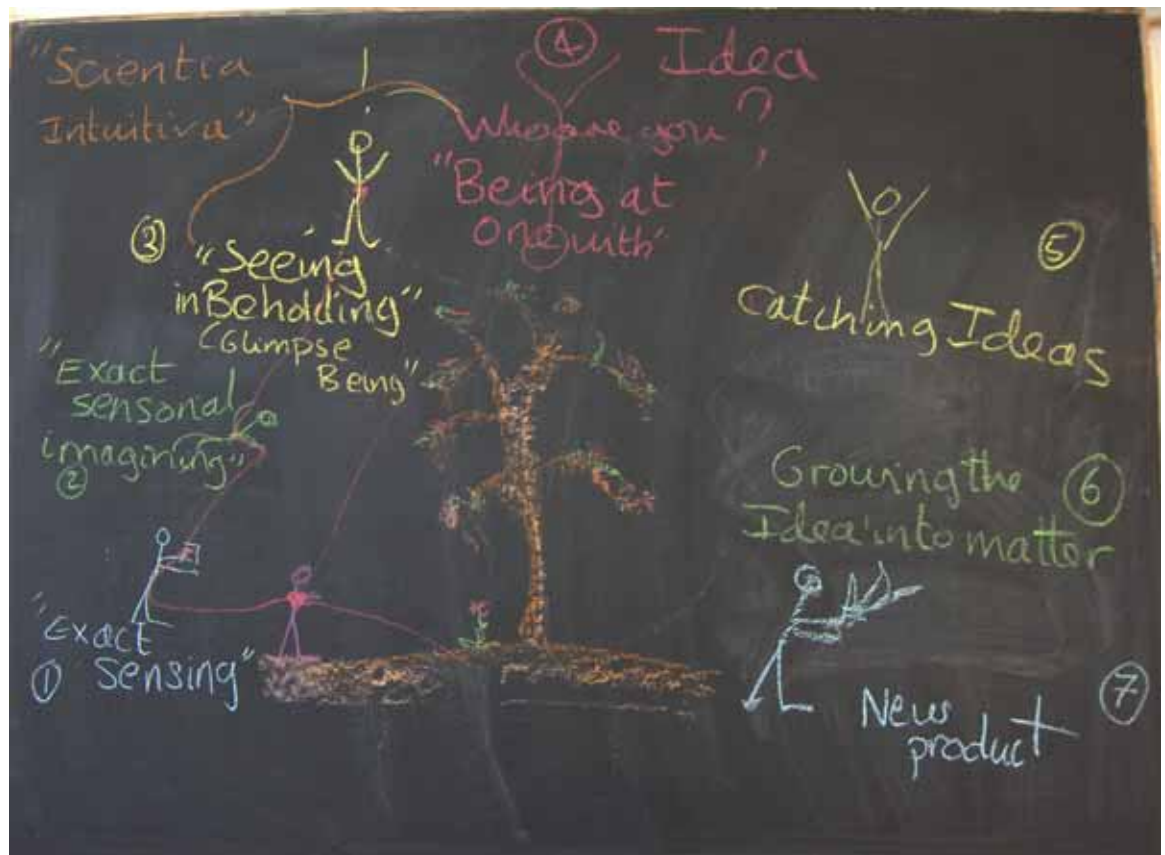 "Scientia
Intuitiva"
4 Idea
Who are you ?
"Being at
One with"
3 "Seeing
in Beholding"
(Glimpse
Being"
"Exact
sensorial
imagining"
2
"Exact
1 Sensing"
5
Catching Ideas
Growing the 6
Idea into matter
7
New
product